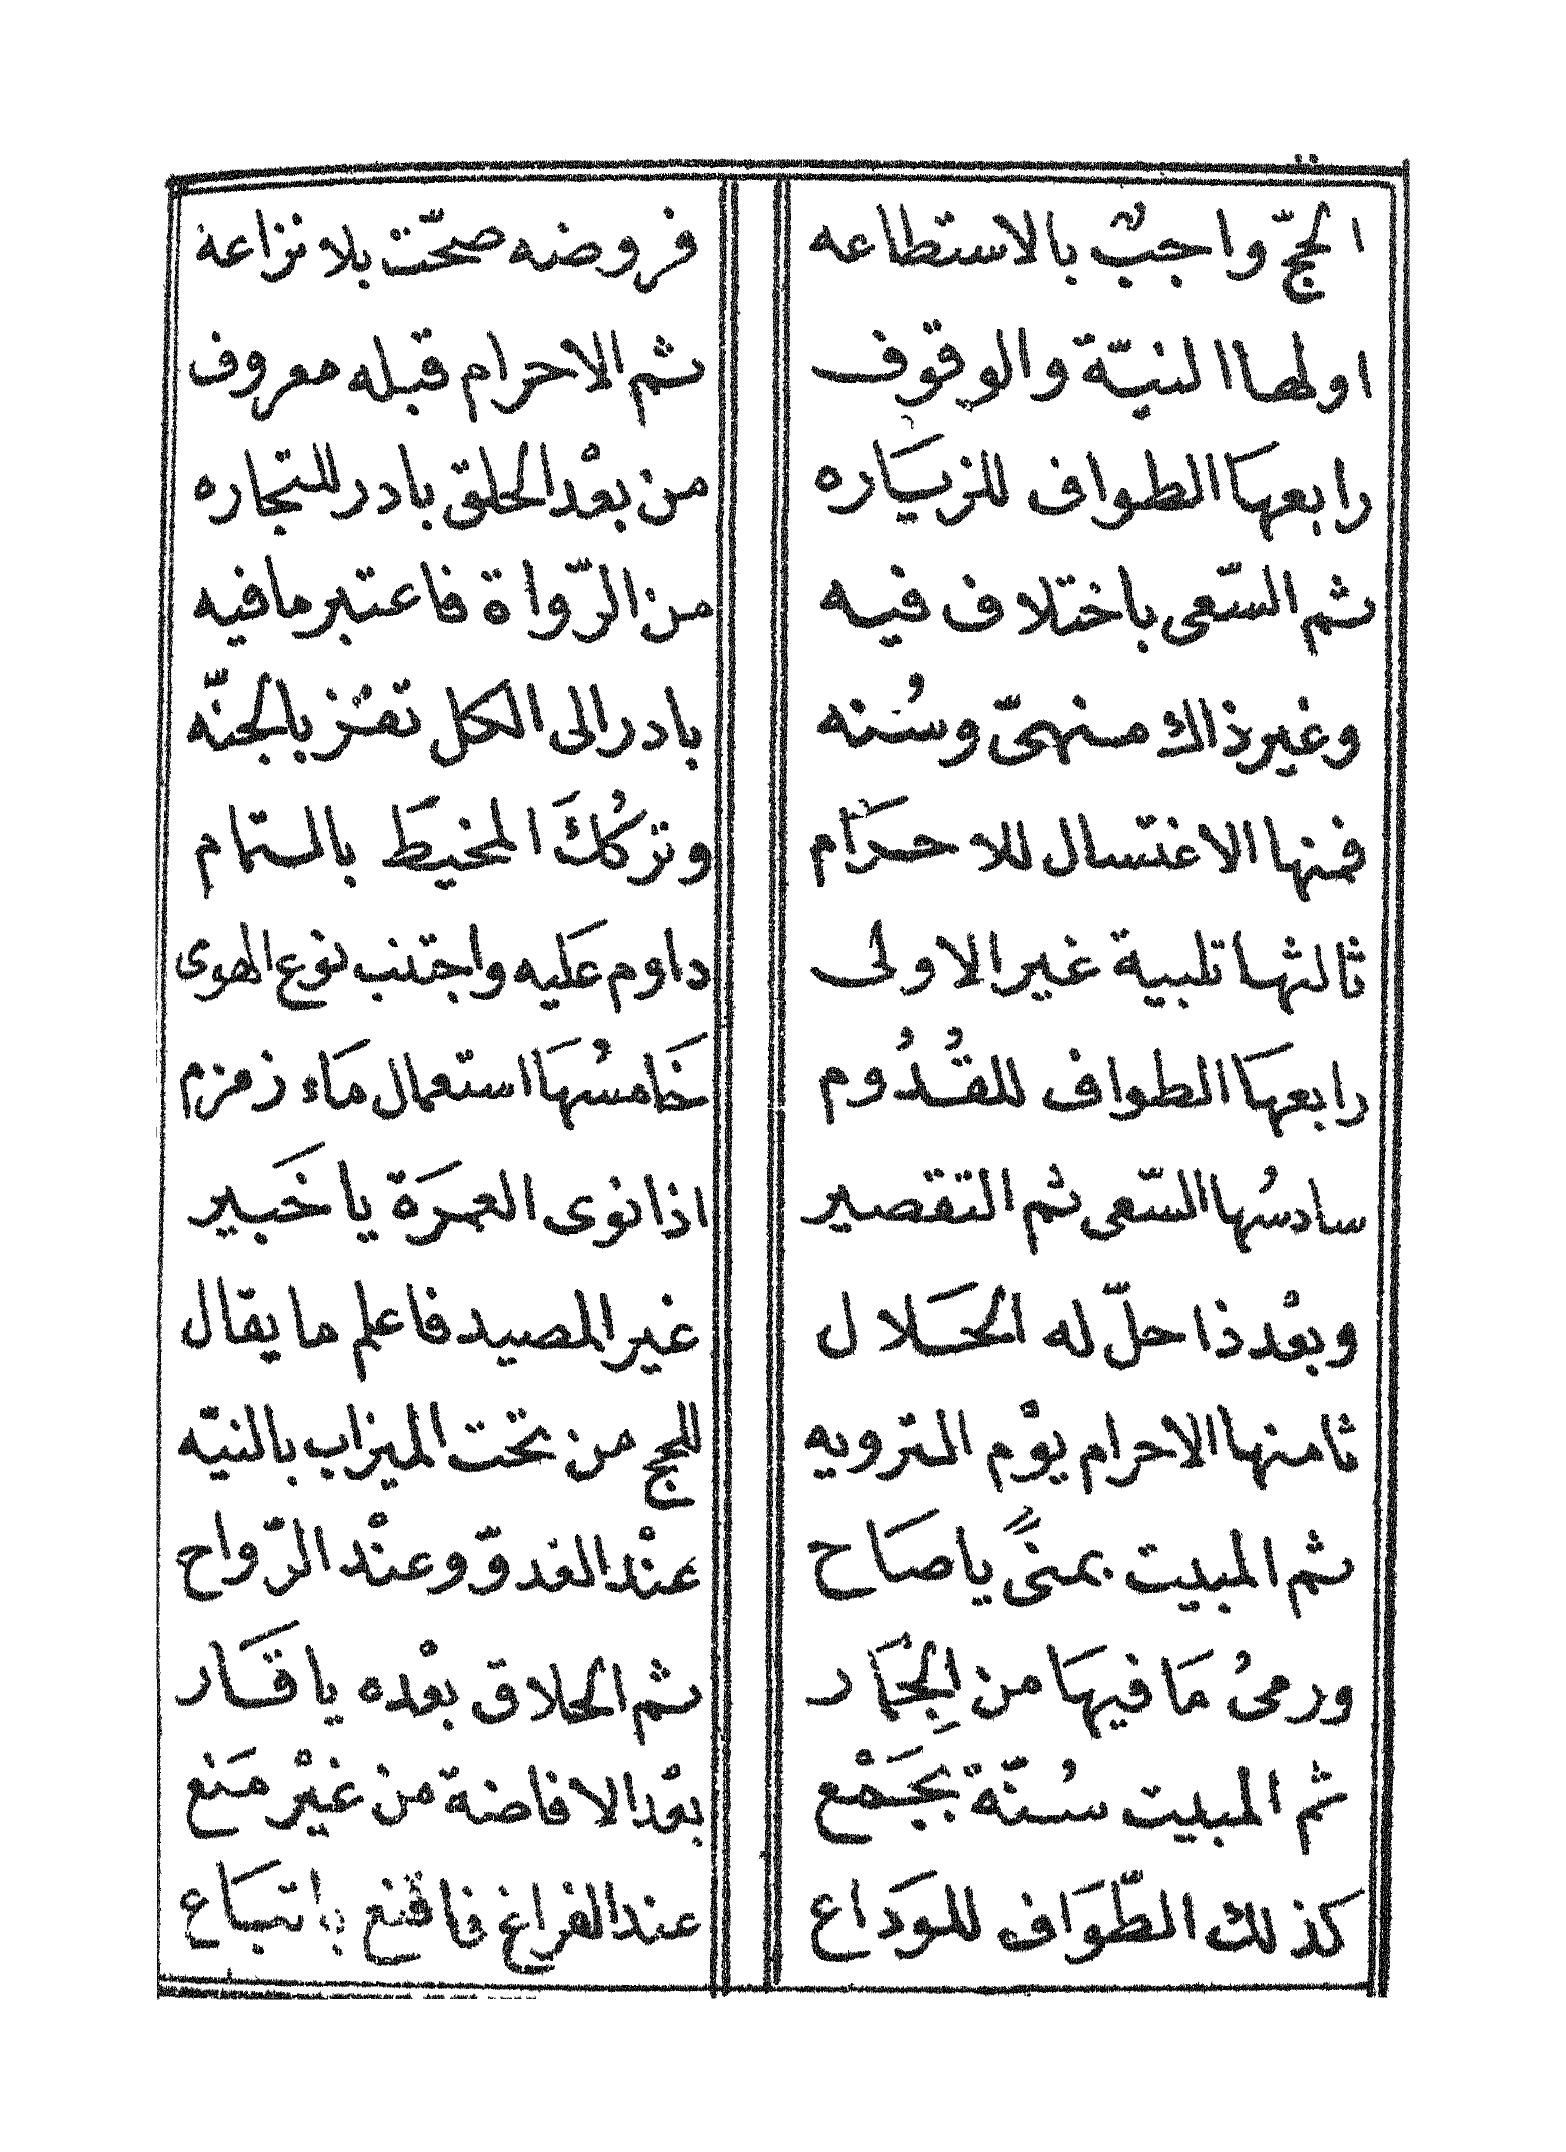 الحجّ واجبٌ بالاستطاعه فروضه صحّت بلا نزاعة
اولها النيّة والوقوف ثم الاحرام قبله معروف
رابعها الطواف للزيَاره من بعْد الحلق بادر للتجاره
ثم السّعى باختلاف فيه من الرّواة فاعتبر مافيه
وغير ذاك منهىّ وسُنه بادر الى الكل تفز بالجنّه
فمنها الاغتسال للاحرَام وتركُكَ المخيَط بالتمام
ثالثها تلبية غير الاولى داوم عَليه واجتنب نوع الهوى
رابعهَا الطواف للقُدُوم خَامسُهَا استعمال مَاء زمزم
سادسُها السّعى ثم التقصير اذا نوى العمرَة يا خَبير
وبعْد ذا حلّ له الحَلال غير المصيد فاعلم ما يقال
ثامنها الاحرام يوْم الترويه للحج من تحت الميزاب بالنيّه
ثم المبيت بمنىً يا صَاح عنْد الغدوّ وعنْد الرّواح
ورمىُ مَا فيهَا من الجِمَار ثم الحلاق بعْده يا قَار
ثم المبيت سُنّة بجَمْع بعْد الافاضة من غيْر مَنع
كذلك الطّوَاف للوَداع عند الفراغ فاقنع باتبَاع